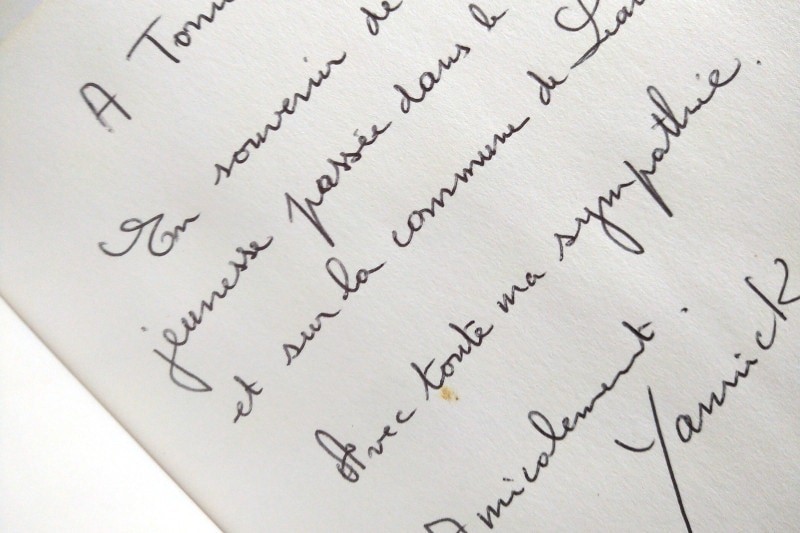 A
En souvenir de
jeunesse passée dans le
et sur la commune de
Avec toute ma sympathie.
Amicalement.
Yannick